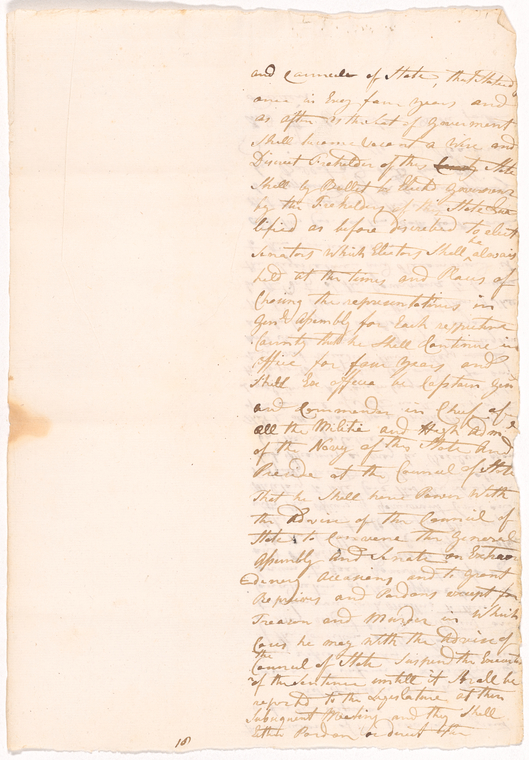 and Councile of State, that Stated
once in Evey four years and
as often as the Seat of Goverment
Shall become Vacant a Wise and
Discreet Freeholder of this State
Shall by Ballot be Elected Governour
by the Freeholders of this State Qua
lified as before discribed to elect
Senators which Electors Shall be always
held at the times and Places of
Chosing the representatives in
Genl. Asembly for Each respective
County that he Shall Continue in
office for four years and
Shall Ex officio be Captain Gen
and Commander in Chief of
all the Militia and High Adml
of the Navy of this State and
Preside at the Council of State
that he Shall have Power with
the Advice of the Council of
State to Convene the General
Asembly and Senate on Extraor
dinery occasions and to grant
Reprives and Pardons except for
Treason and Murder in Which
Cases he may with the Advice of
the
Council of State Suspend the Execution
of the Sentence untill it Shall be
reportd to the Legislature at their
Subsequent Meeting and they Shall
Either Pardon or direct the